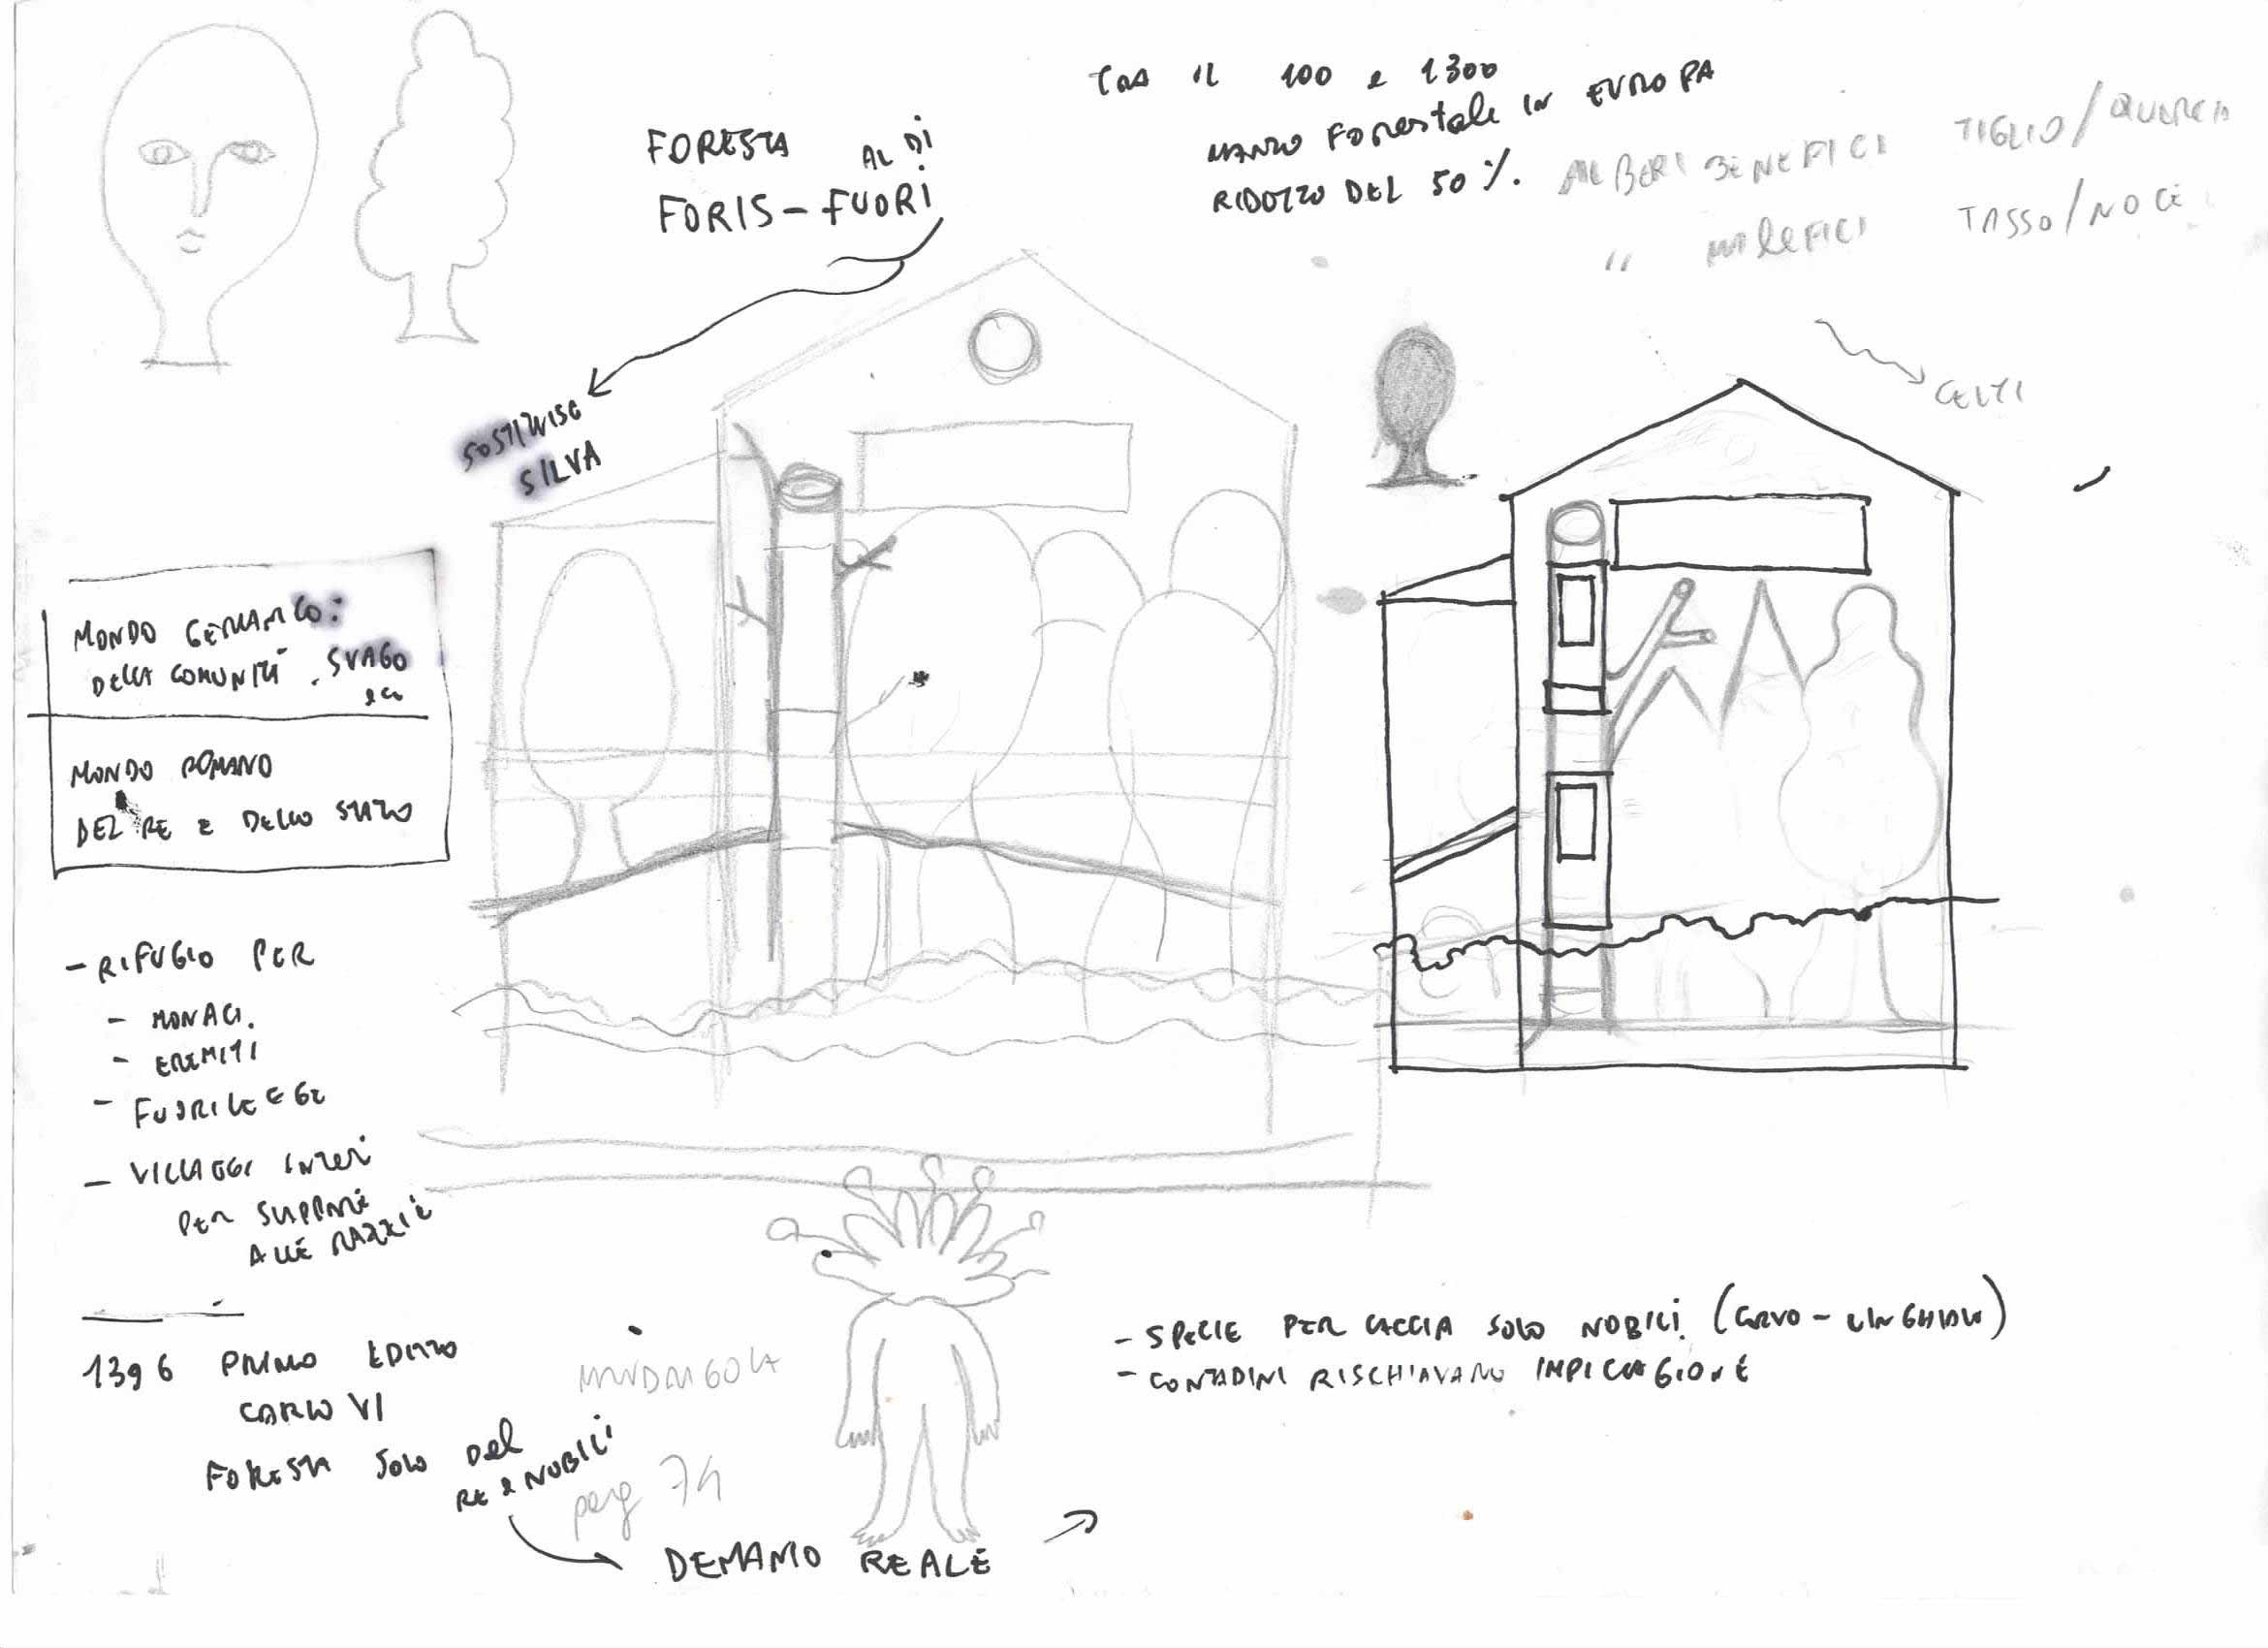 FORESTA AL DI
FORIS - FUORI
SOSTITUISCE
SILVA
TRA IL 100 e 1300
MANTO FORESTALE IN EUROPA
RIDOTTO DEL 50 %.
ALBERI BENEFICI TIGLIO/QUERCIA
" MALEFICI TASSO/NOCE
CELTI
MONDO GERMANICO:
DELLA COMUNITÀ. SVAGO
MONDO ROMANO
DEL RE E DELLO STATO
- RIFUGIO PER
- MONACI.
- EREMITI
- FUORILEGGE
- VILLAGGI INTERI
PER SCAPPARE
ALLE RAZZIE
1396 PRIMO EDITTO
CARLO VI
FORESTA SOLO DEL
RE e NOBILI
DEMANIO REALE
MANDRAGOLA
pag 74
- SPECIE PER CACCIA SOLO NOBILI (CERVO - CINGHIALE)
- CONTADINI RISCHIAVANO IMPICCAGIONE